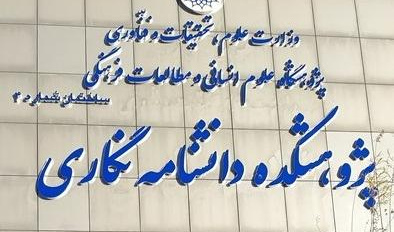 وزارت علوم، تحقیقات و فنّاوری
پژوهشگاه علوم انسانی و مطالعات فرهنگی
ساختمان شماره ۴
پژوهشکده دانشنامه نگاری